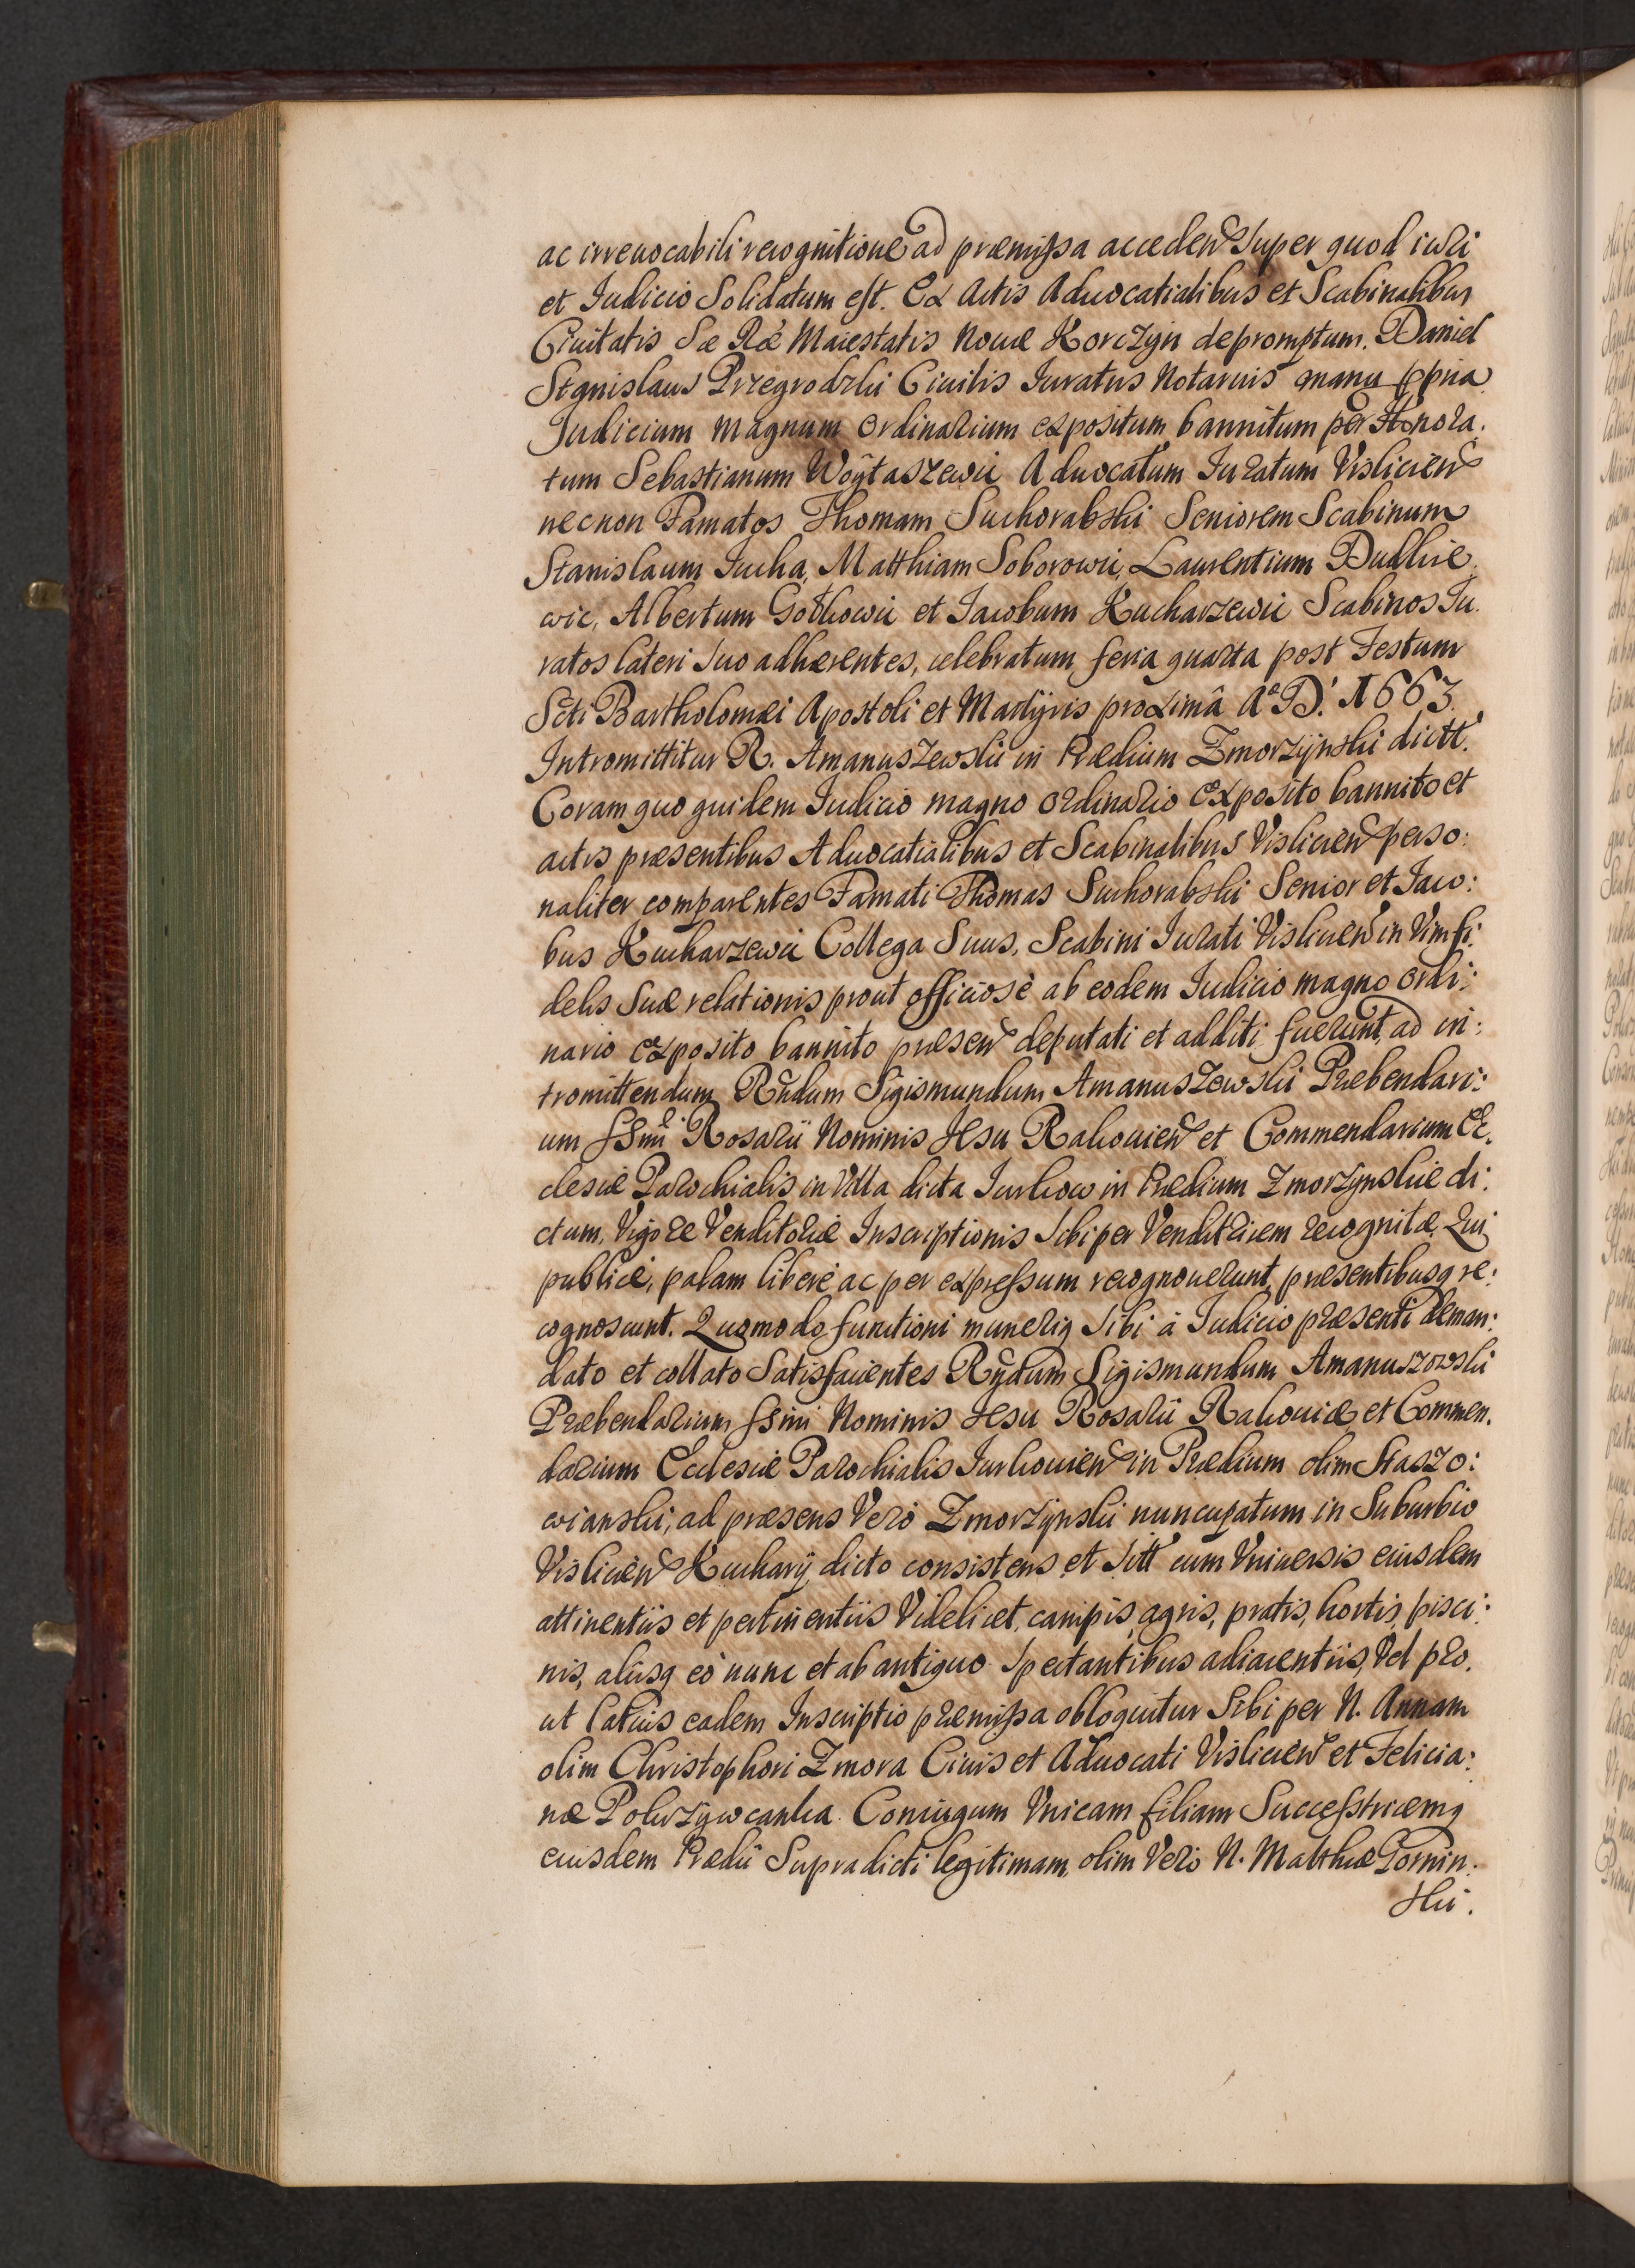 ac irreuocabili recognitione ad præmissa acceden Super quod iuri
et Iudicio Solidatum est. Ex Actis Aduocatialibus et Scabinalibus
Ciuitatis Sæ Ræ Maiestatis Nouæ Korczÿn depromptum. Daniel
Stanislaus Przegrodzki Ciuilis Iuratus Notarius manu ppria
Judicium Magnum Ordinarium expositum bannitum per Honora.
tum Sebastianum Woÿtaszewic Aduocatum Iuratum Vislicien
necnon Famatos Thomam Suchorabski Seniorem Scabinum
Stanislaum Jucha, Matthiam Soborowic, Laurentium Dudkie.
wic, Albertum Gotkowic et Iacobum Kucharzewic Scabinos Iu.
ratos lateri suo adhærentes, celebratum feria quarta post Festum
Scti Bartholomæi Apostoli et Martÿris proximâ Aº D. 1663.
Intromittitur R. Amanuszewski in Prædium Zmorzÿnski dictt.
Coram quo quidem Iudicio magno Ordinario Exposito bannito et
actis præsentibus Aduocatialibus et Scabinalibus Vislicien perso:
naliter comparentes Famati Thomas Suchorabski Senior et Iaco:
bus Kucharzewic Collega Suus, Scabini Iurati Vislicien in Vim fi:
delis Suæ relationis prout officiosè ab eodem Iudicio magno Ordi:
nario exposito bannito præsen deputati et additi fuerunt, ad in:
tromittendum Rñdum Sigismundum Amanuszewski Præbendari:
um SSmi Rosarii Nominis Iesu Rakouien et Commendarium Ec.
clesiæ Parochialis in Villa dicta Iurkow in Prædium Zmorzynskie di:
ctum, Vigore Venditoriæ Inscriptionis Sibi per Venditricem recognitæ. Qui
publicè, palam liberè ac per expressum recognouerunt, præsentibusq re:
cognoscunt. Quomodo functioni muneriq Sibi à Iudicio præsenti deman:
dato et collato Satisfacientes Rñdum Sigismundum Amanuszowski
Præbendarium SSmi Nominis Iesu Rosarii Rakouiæ et Commen.
darium Ecclesiæ Parochialis Iurkouien in Prædium olim Staszo:
wianski, ad præsens Verò Zmorzÿnski nuncupatum in Suburbio
Vislicien Kucharÿ dicto consistens et Sitt cum Vniuersis eiusdem
attinentiis et pertinentiis Videlicet, campis, agris, pratis, hortis, pisci:
nis, aliisq eò nunc et ab antiquo Spectantibus adiacentiis, Vel pro.
ut latius eadem Inscriptio præmissa obloquitur Sibi per N. Annam
olim Christophori Zmora Ciuis et Aduocati Vislicien et Felicia:
næ Pokrzÿwcanka Coniugum Vnicam filiam Successtricemq
eiusdem Prædii Supradicti legitimam, olim Verò N. Matthiæ Gornin.
ski.